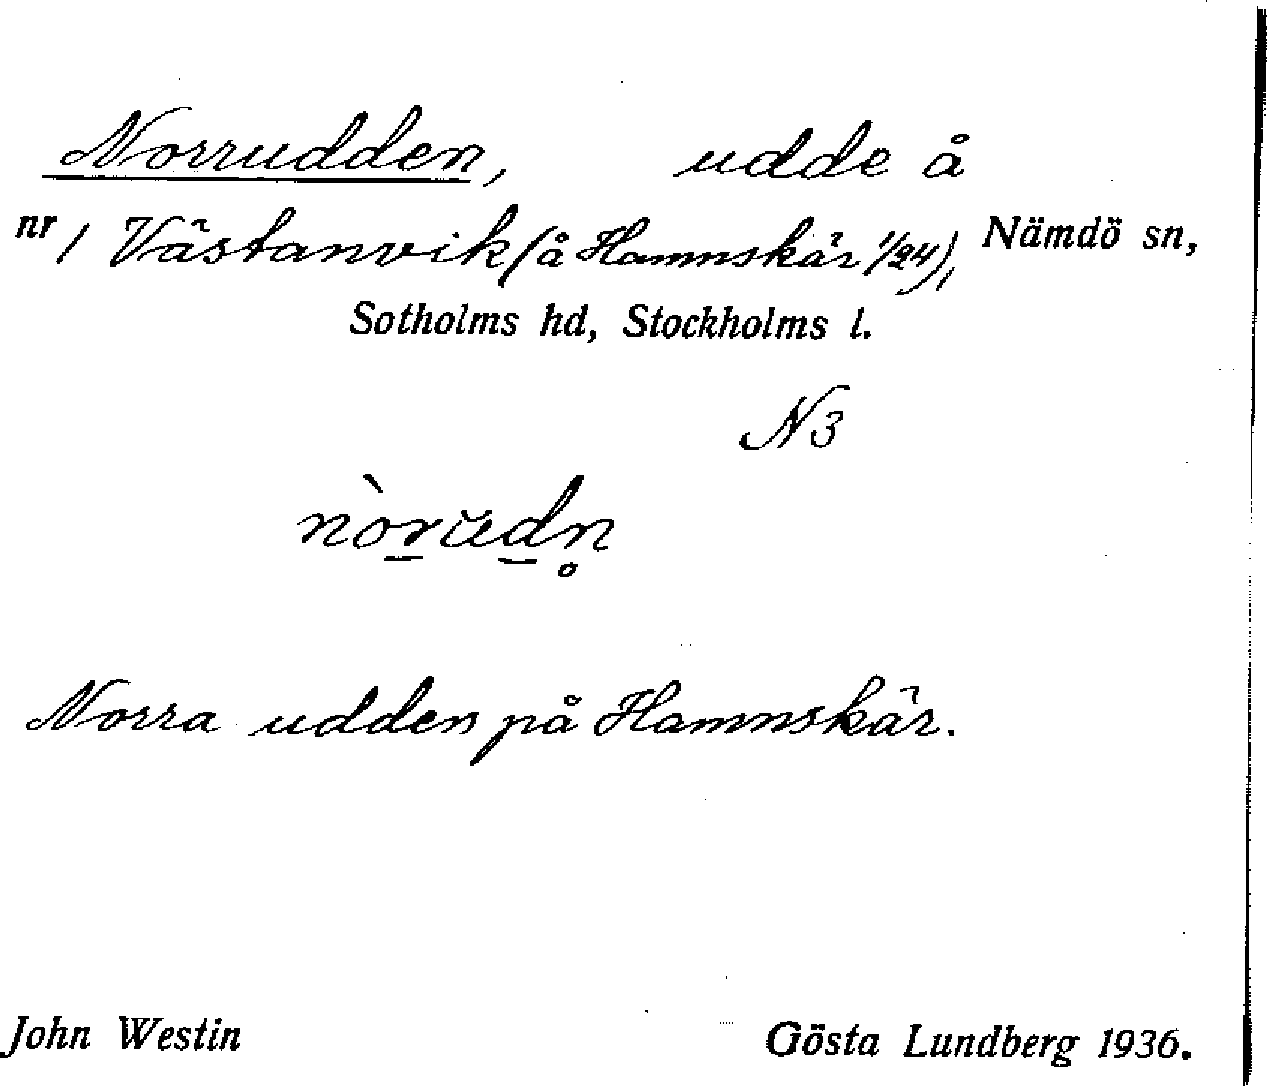 Norrudden, udde å
nr 1 Västanvik (å Hamnskär 1/24), Nämdö sn,
Sotholms hd, Stockholms l.
N3
nòr̲ŭd̲n̥
Norra udden på Hamnskär.
John Westin Gösta Lundberg 1936.